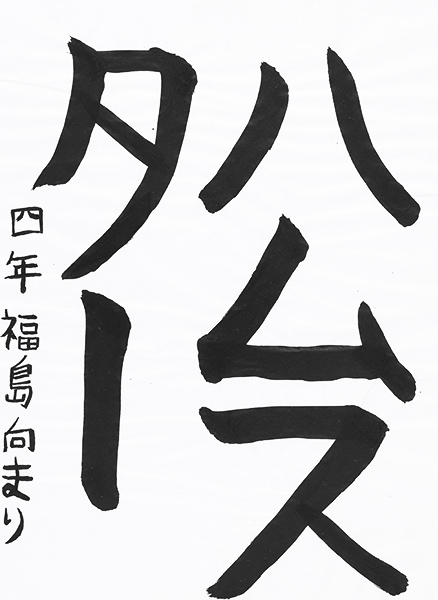 ハムス
ター
四年 福島向まり